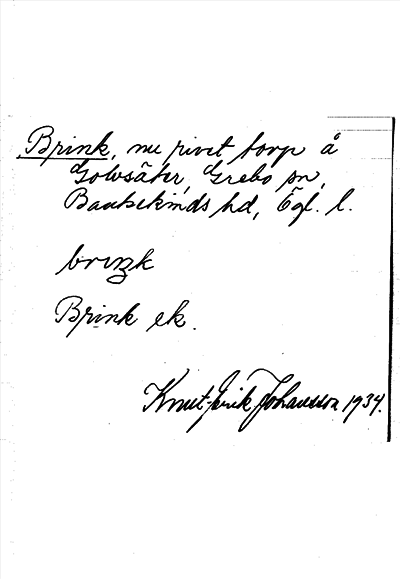 Brink, nu rivet torp å
Golvsäter, Grebo sn,
Bankekinds hd, Ögl. l.
briŋk
Brink ek.
Knut-Erik Johansson 1934.